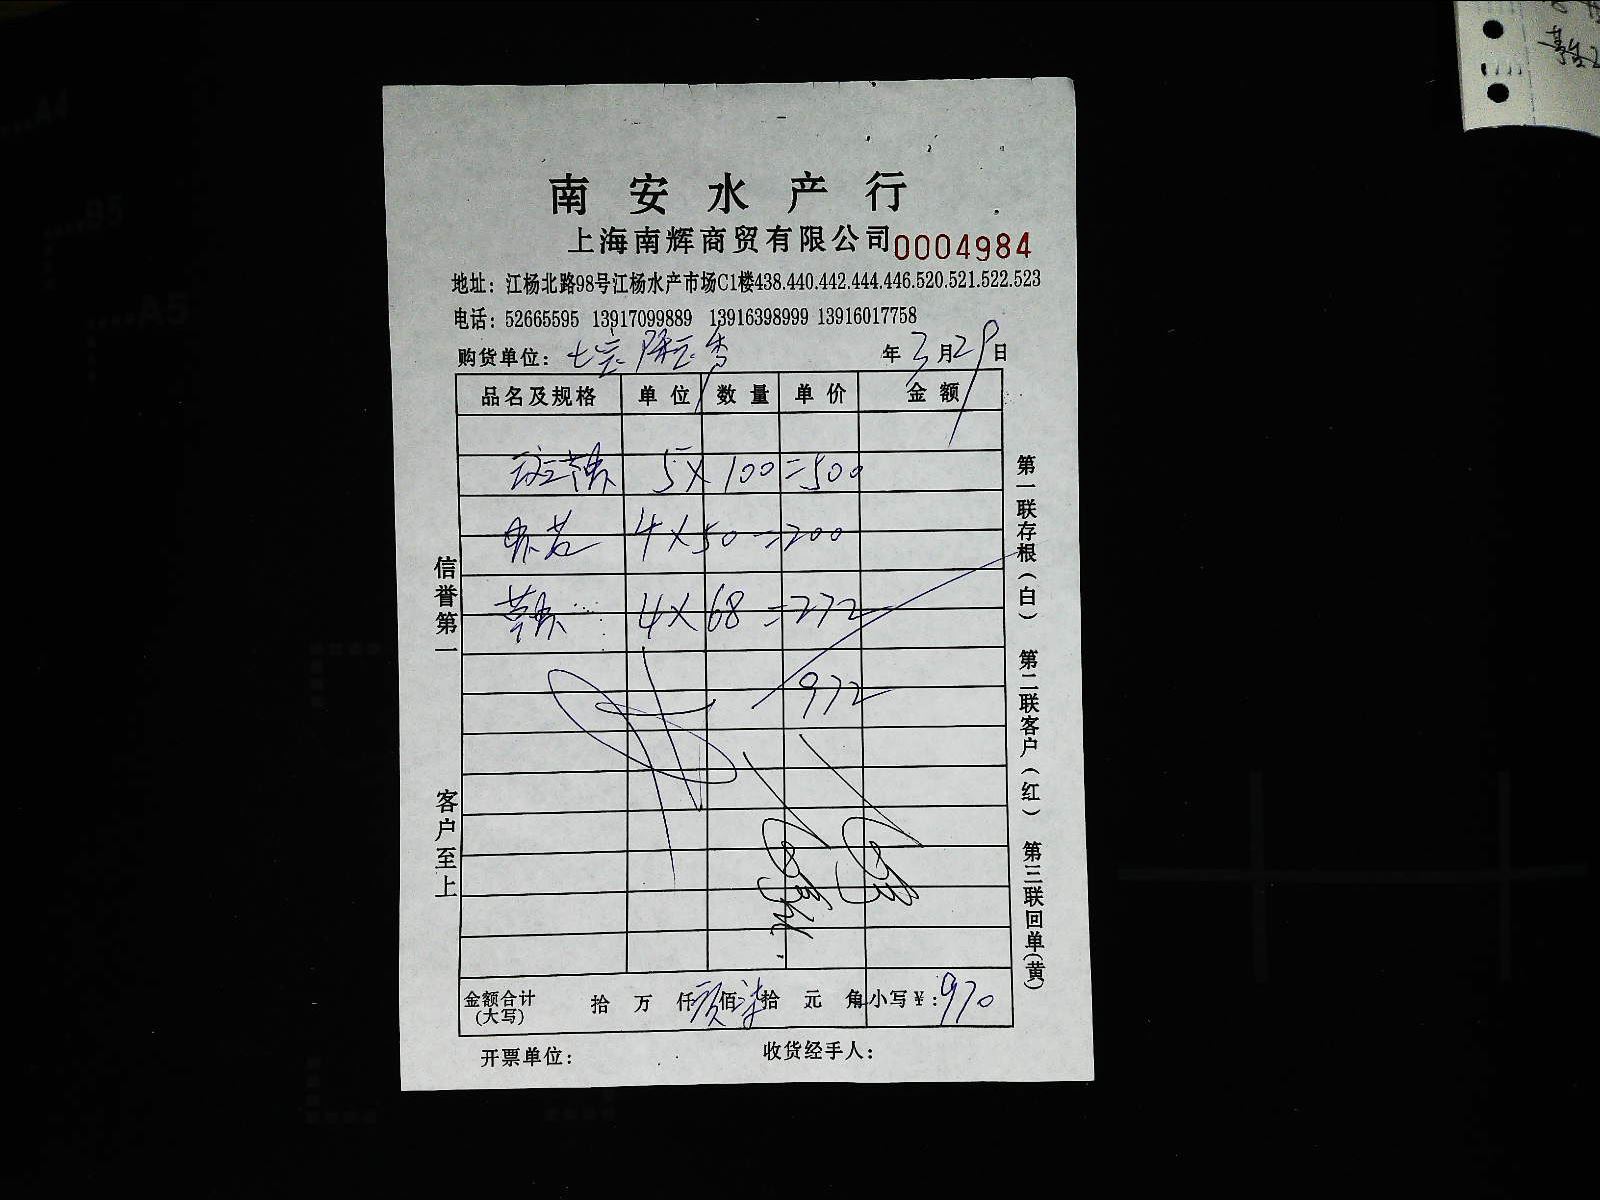 南安水产行
上海南辉商贸有限公司0004984
地址：江杨北路98号江杨水产市场C1楼438.440.442.444.446.520.521.522.523
电话：52665595 13917099889 13916398999 13916017758
购货单位：七宝 年3月29日
品名及规格 单位 数量 单价 金额
5×100=500
4×50=200
4×68=272
972
金额合计(大写) 拾 万 仟 佰柒拾 元 角 小写￥:970
开票单位： 收货经手人：
信誉第一 客户至上
第一联存根(白) 第二联客户(红) 第三联回单(黄)